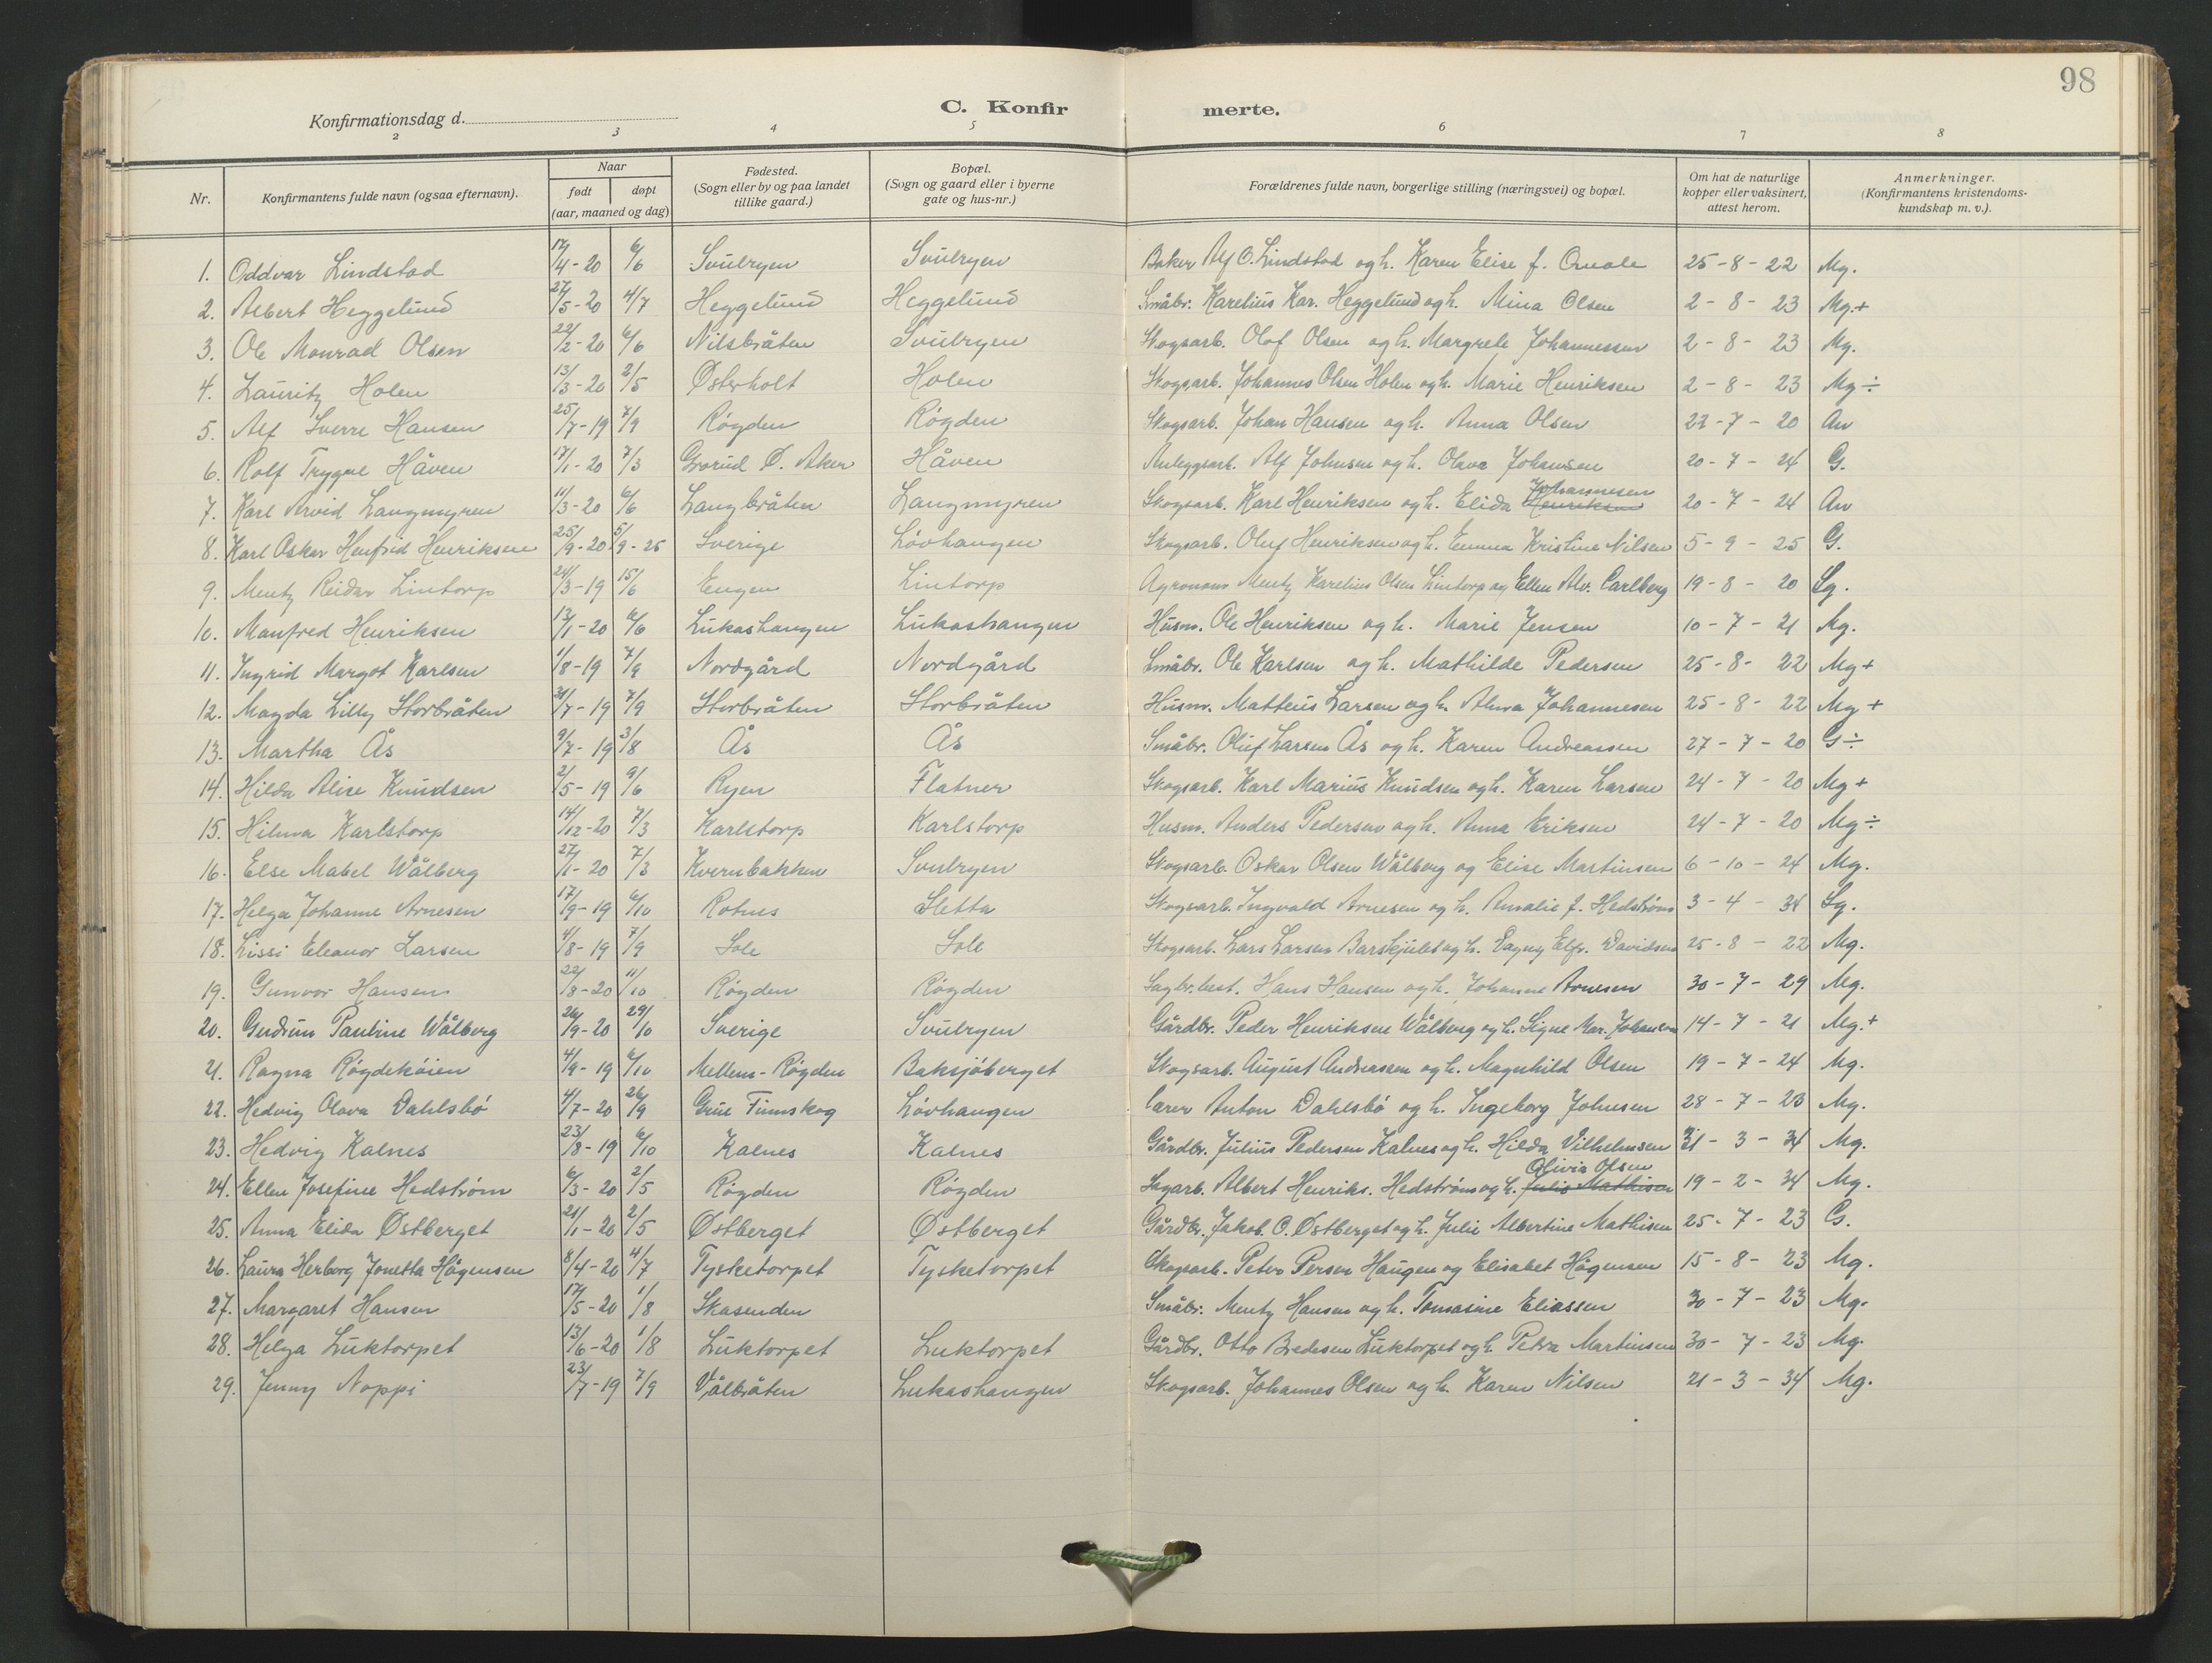 98
Konfirmationsdag d.
C. Konfirmerte.
2 3 4 5 6 7 8
Nr. Konfirmantens fulde navn (ogsaa efternavn). Naar født døpt (aar, maaned og dag) Fødested. (Sogn eller by og paa landet tillike gaard.) Bopæl. (Sogn og gaard eller i byerne gate og hus-nr.) Forældrenes fulde navn, borgerlige stilling (næringsvei) og bopæl. Om hat de naturlige kopper eller vaksinert, attest herom. Anmerkninger. (Konfirmantens kristendomskundskap m. v.).
1. Oddvar Lindstad 17/4-20 6/6 Svulryen Svulryen Baker Alf O. Lindstad og h. Karen Elise f. Qvale 25-8-22 Mg.
2. Albert Heggelund 27/5-20 4/7 Heggelund Heggelund Småbr. Karelius Kar. Heggelund og h. Mina Olsen 2-8-23 Mg.+
3. Ole Monrad Olsen 22/2-20 6/6 Nilsbråten Svulryen Skogsarb. Olof Olsen og h. Margrete Johannessen 2-8-23 Mg.
4. Lauritz Holen 13/3-20 2/5 Østerholt Holen Skogsarb. Johannes Olsen Holen og h. Marie Henriksen 2-8-23 Mg÷
5. Alf Sverre Hansen 25/7-19 7/9 Røgden Røgden Skogsarb. Johan Hansen og h. Anna Olsen 22-7-20 An
6. Rolf Trygve Håven 17/1-20 7/3 Grorud Ø. Aker Håven Anleggsarb. Alf Johnsen og h. Olava Johansen 20-7-24 G.
7. Karl Arvid Langmyren 11/3-20 6/6 Langbråten Langmyren Skogsarb. Karl Henriksen og h. Elida Henriksen Johannesen 20-7-24 An
8. Karl Oskar Henfrid Henriksen 25/9-20 5/9-25 Sverige Løvhaugen Skogsarb. Oluf Henriksen og h. Emma Kristine Nilsen 5-9-25 G.
9. Mentz Reidar Lintorp 24/3-19 15/6 Engen Lintorp Agronom Mentz Karelius Olsen Lintorp og Ellen Alv. Carlberg 19-8-20 Sg.
10. Manfred Henriksen 13/1-20 6/6 Lukashaugen Lukashaugen Husm. Ole Henriksen og h. Marie Jensen 10-7-21 Mg.
11. Ingrid Margot Karlsen 1/8-19 7/9 Nordgård Nordgård Småbr. Ole Karlsen og h. Mathilde Pedersen 25-8-22 Mg+
12. Magda Lilly Storbråten 31/7-19 7/9 Storbråten Storbråten Husm. Matteus Larsen og h. Alma Johannesen 25-8-22 Mg+
13. Martha Ås 9/7-19 3/8 Ås Ås Småbr. Oluf Larsen Ås og h. Karen Andreassen 27-7-20 G÷
14. Hilda Alise Knudsen 2/5-19 9/6 Ryen Flatner Skogsarb. Karl Marius Knudsen og h. Karen Larsen 24-7-20 Mg+
15. Hilma Karlstorp 14/12-20 7/3 Karlstorp Karlstorp Husm. Anders Pedersen og h. Anna Eriksen 24-7-20 Mg÷
16. Else Mabel Wålberg 27/1-20 7/3 Kvernbakken Svulryen Skogsarb. Oskar Olsen Wålberg og Elise Martinsen 6-10-24 Mg.
17. Helga Johanne Arnesen 17/9-19 6/10 Rotnes Sletta Skogsarb. Ingvald Arnesen og h. Amalie f. Hedstrøm 3-4-34 Sg.
18. Lissi Eleanor Larsen 4/8-19 7/9 Sole Sole Skogsarb. Lars Larsen Barskjulet og h. Dagny Elfr. Davidsen 25-8-22 Mg.
19. Gunvor Hansen 22/8-20 11/10 Røgden Røgden Sagbr.best. Hans Hansen og h. Johanne Arnesen 30-7-29 Mg.
20. Gudrun Pauline Wålberg 26/9-20 29/10 Sverige Svulryen Gårdbr. Peder Henriksen Wålberg og h. Signe Mar. Johansen 14-7-21 Mg.+
21. Ragna Røgdekøien 4/9-19 6/10 Mellem-Røgden Baksjøberget Skogsarb. August Andreassen og h. Magnhild Olsen 19-7-24 Mg.
22. Hedvig Olava Dahlsbø 4/7-20 26/9 Grue Finnskog Løvhaugen Lærer Anton Dahlsbø og h. Ingeborg Johnsen 28-7-23 Mg.
23. Hedvig Kalnes 23/8-19 6/10 Kalnes Kalnes Gårdbr. Julius Pedersen Kalnes og h. Hilda Vilhelmsen 21-3-34 Mg.
24. Ellen Josefine Hedstrøm 6/3-20 2/5 Røgden Røgden Sagarb. Albert Henriks. Hedstrøm og h. Julie Mathisen Olivia Olsen 19-2-34 Mg.
25. Anna Elida Østberget 21/1-20 2/5 Østberget Østberget Gårdbr. Jakob. O. Østberget og h. Julie Albertine Mathisen 25-7-23 G.
26. Laura Herborg Jonetta Hågensen 8/4-20 4/7 Tysketorpet Tysketorpet Skogsarb. Peter Persen Haugen og Elisabet Hågensen 15-8-23 Mg.
27. Margaret Hansen 17/5-20 1/8 Skasenden Småbr. Mentz Hansen og h. Tomasine Eliassen 30-7-23 Mg.
28. Helga Luktorpet 13/6-20 1/8 Luktorpet Luktorpet Gårdbr. Otto Bredesen Luktorpet og h. Petra Martinsen 30-7-23 Mg.
29. Jenny Noppi 23/7-19 7/9 Vålbråten Lukashaugen Skogsarb. Johannes Olsen og h. Karen Nilsen 21-3-34 Mg.